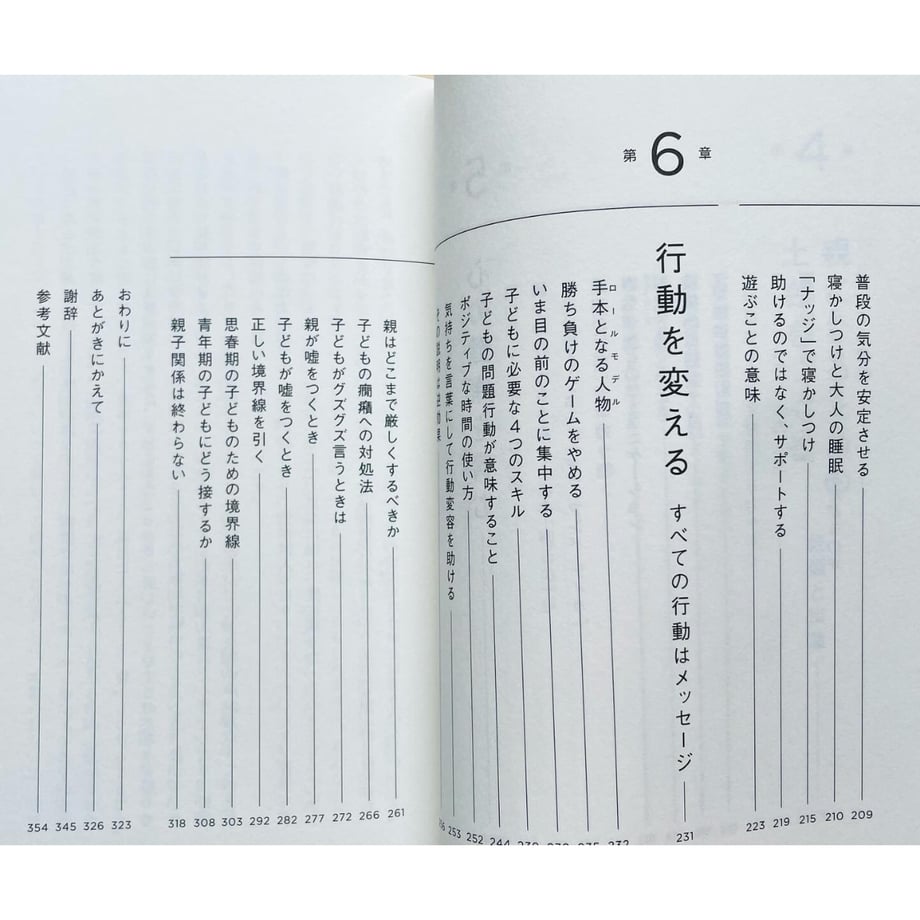 普段の気分を安定させる 209
寝かしつけと大人の睡眠 210
「ナッジ」で寝かしつけ 215
助けるのではなく、サポートする 219
遊ぶことの意味 223
第6章
行動を変える すべての行動はメッセージ 231
手本となる人物 ロールモデル 232
勝ち負けのゲームをやめる 235
いま目の前のことに集中する
子どもに必要な4つのスキル
子どもの問題行動が意味すること 244
ポジティブな時間の使い方 252
気持ちを言葉にして行動変容を助ける 253
親はどこまで厳しくするべきか 261
子どもの癇癪への対処法 266
子どもがグズグズ言うときは 272
親が嘘をつくとき 277
子どもが嘘をつくとき 282
正しい境界線を引く 292
思春期の子どものための境界線 303
青年期の子どもにどう接するか 308
親子関係は終わらない 318
おわりに 323
あとがきにかえて 326
謝辞 345
参考文献 354